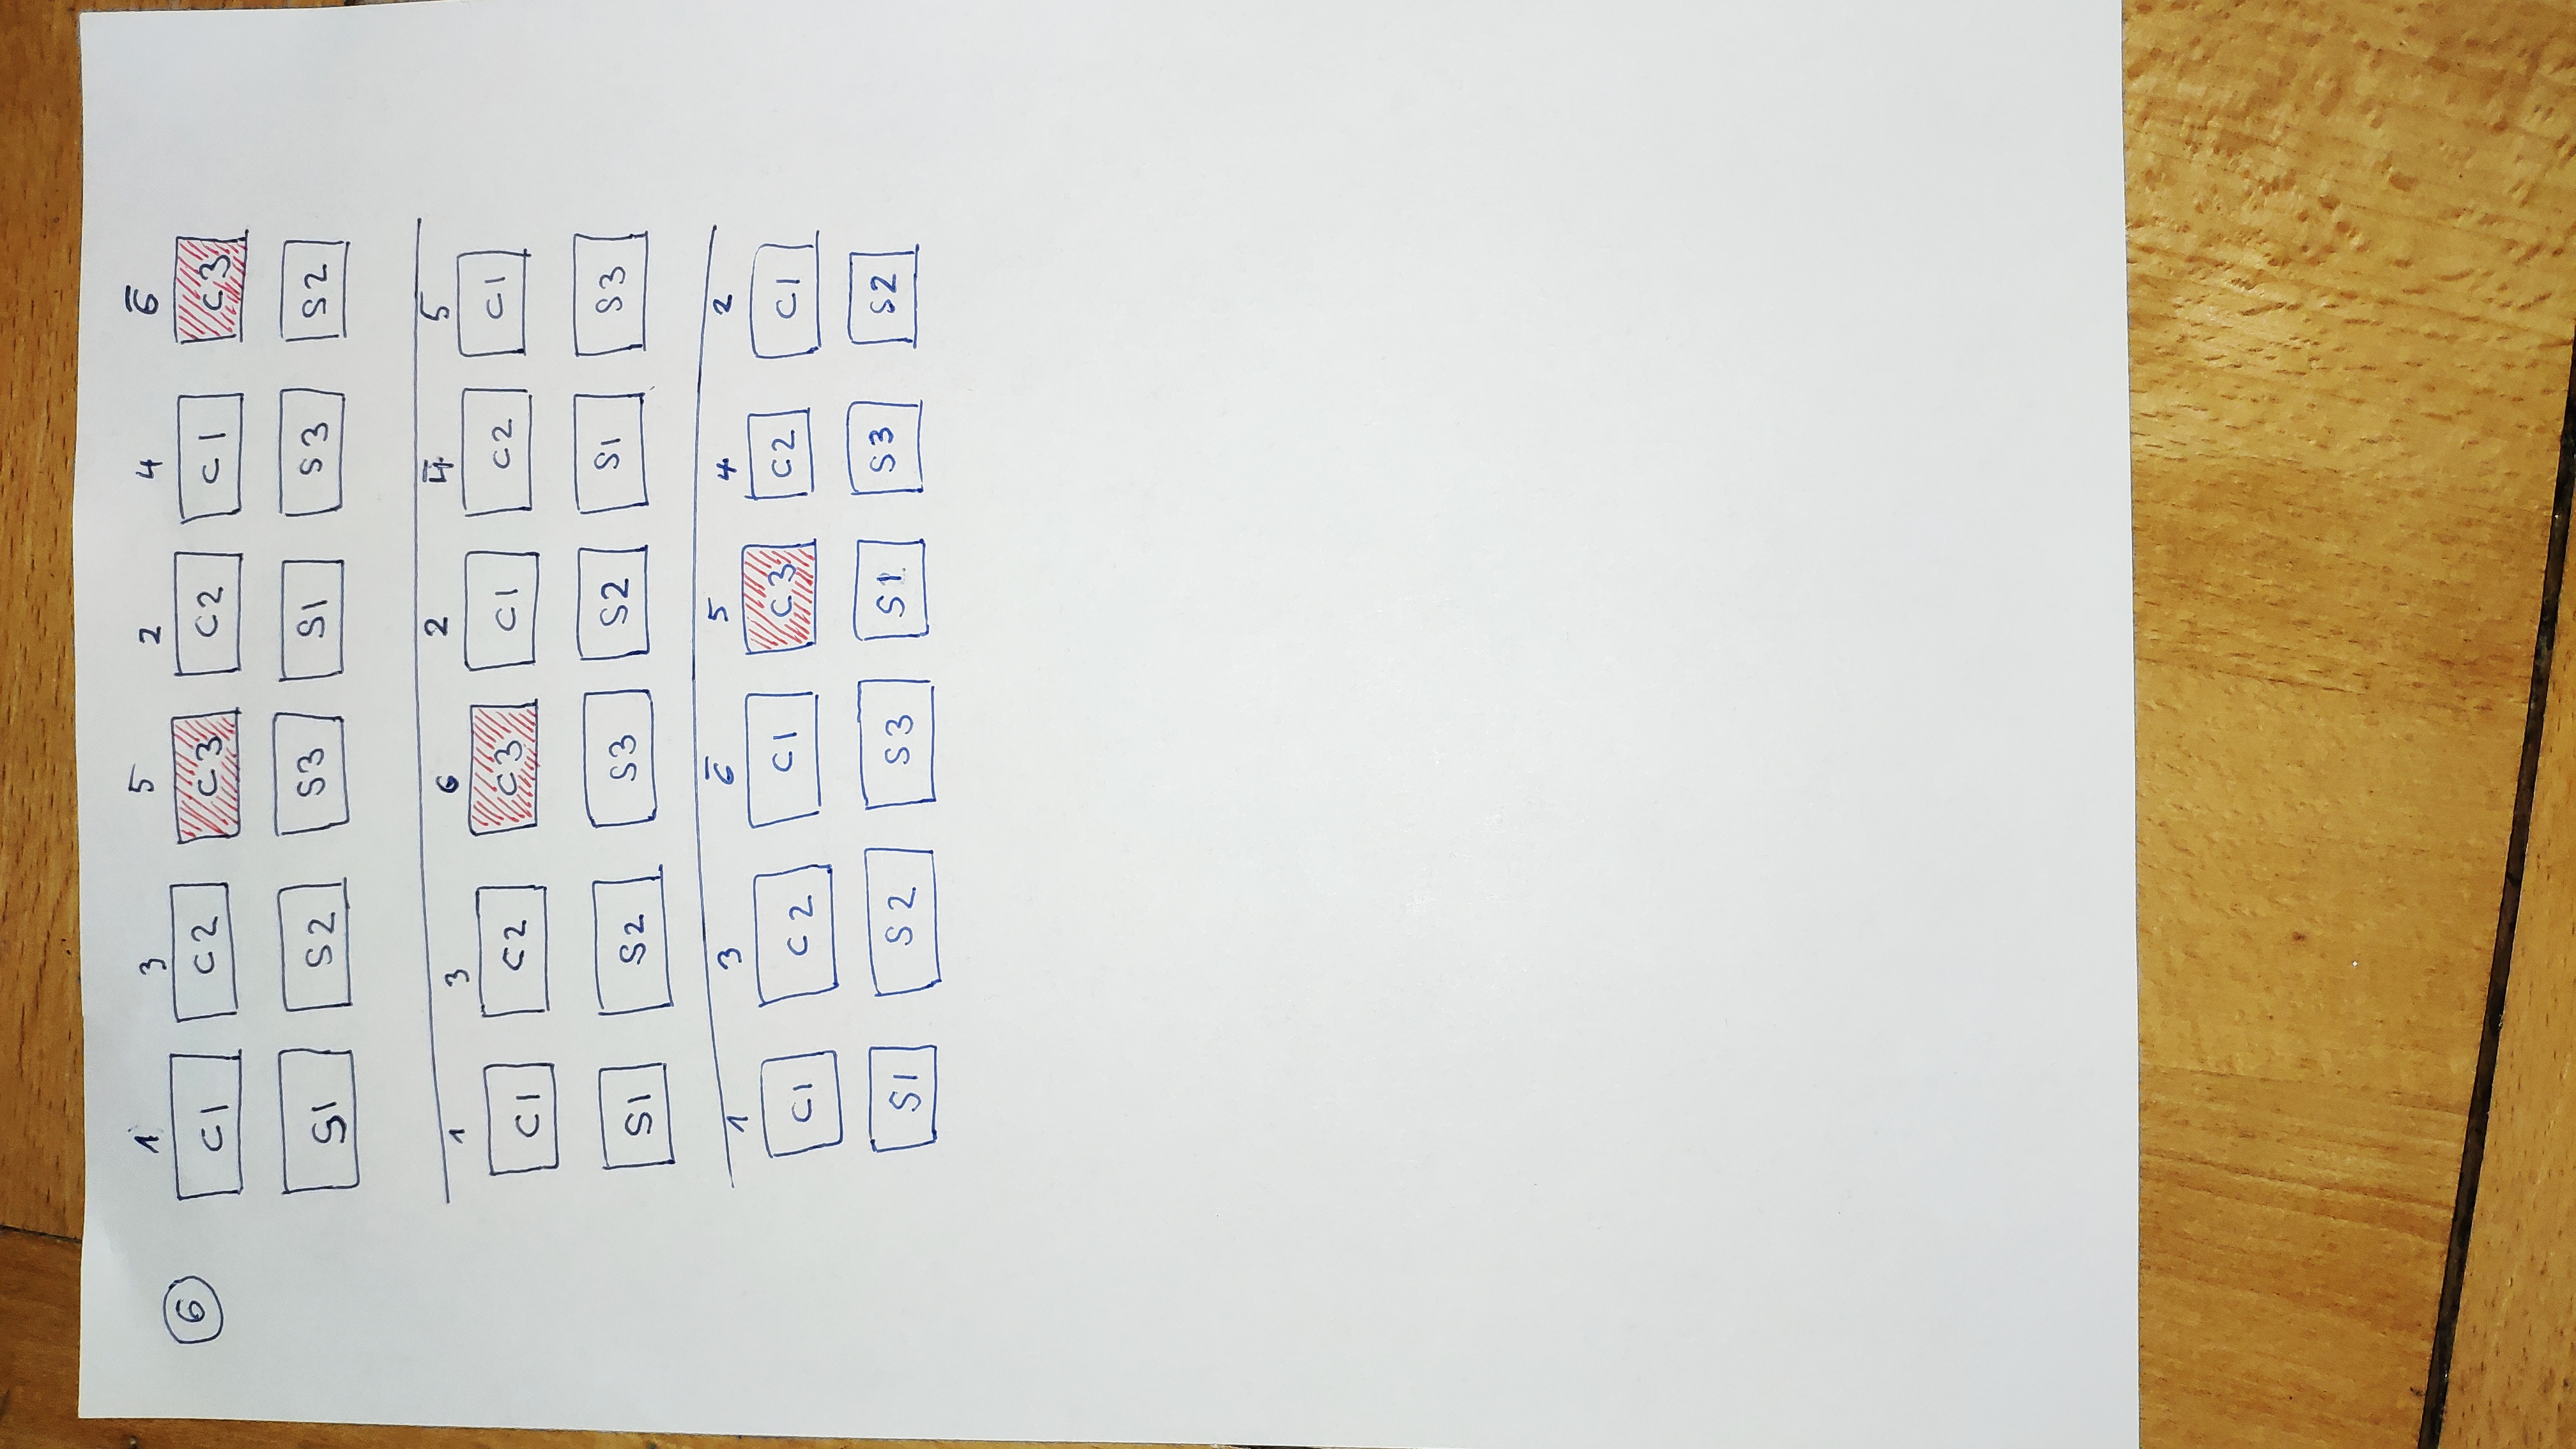 1 3 5 2 4 6̅
6 C1 C2 C3 C2 C1 C3
S1 S2 S3 S1 S3 S2
1 3 6 2 4̅ 5
C1 C2 C3 C1 C2 C1
S1 S2 S3 S2 S1 S3
1 3 6̅ 5 4 2
C1 C2 C1 C3 C2 C1
S1 S2 S3 S1 S3 S2